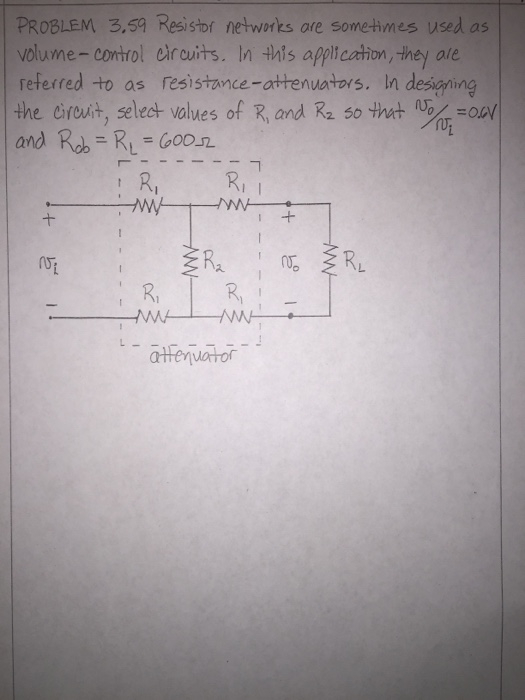 PROBLEM 3.59 Resistor networks are sometimes used as
volume-control circuits. In this application, they are
referred to as resistance-attenuators. In designing
the circuit, select values of R₁ and R₂ so that
and Rab = RL = 600Ω
R₁ R₁
+ +
vi R₂ vo RL
R₁ R₁
- -
attenuator